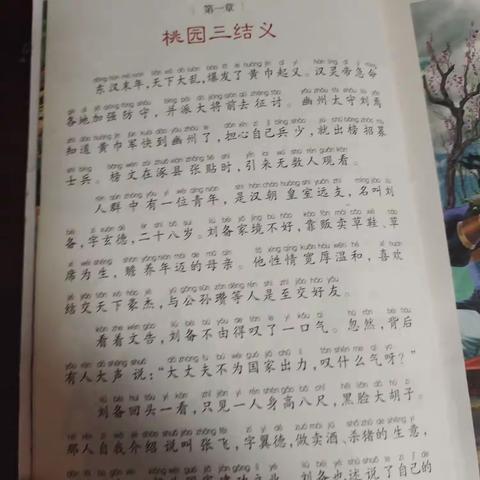 第一章
桃园三结义
东汉末年，天下大乱，爆发了黄巾起义。汉灵帝急命
各地加强防守，并派大将前去征讨。幽州太守刘焉
知道黄巾军快到幽州了，担心自己兵少，就出榜招募
士兵。榜文在涿县张贴时，引来无数人观看。
人群中有一位青年，是汉朝皇室远支，名叫刘
备，字玄德，二十八岁。刘备家境不好，靠贩卖草鞋、草
席为生，赡养年迈的母亲。他性情宽厚温和，喜欢
结交天下豪杰，与公孙瓒等人是至交好友。
看着文告，刘备不由得叹了一口气。忽然，背后
有人大声说：“大丈夫不为国家出力，叹什么气呀？”
刘备回头一看，只见一人身高八尺，黑脸大胡子。
那人自我介绍说叫张飞，字翼德，做卖酒、杀猪的生意，
刘备也述说了自己的